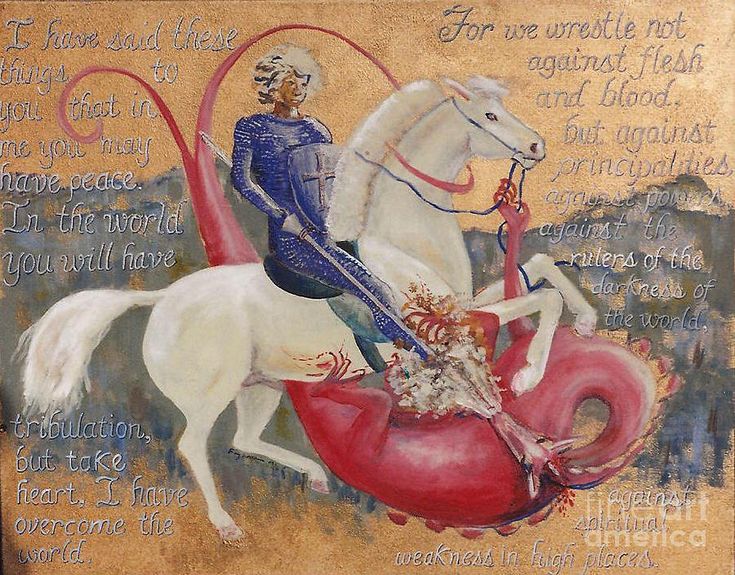 I have said these
things to
you that in
me you may
have peace.
In the world
you will have
tribulation,
but take
heart. I have
overcome the
world.
For we wrestle not
against flesh
and blood.
but against
principaldies
against powers
against the
rulers of the
darkness of
the world.
against
spiritual
weakness in high places.
fine art
america